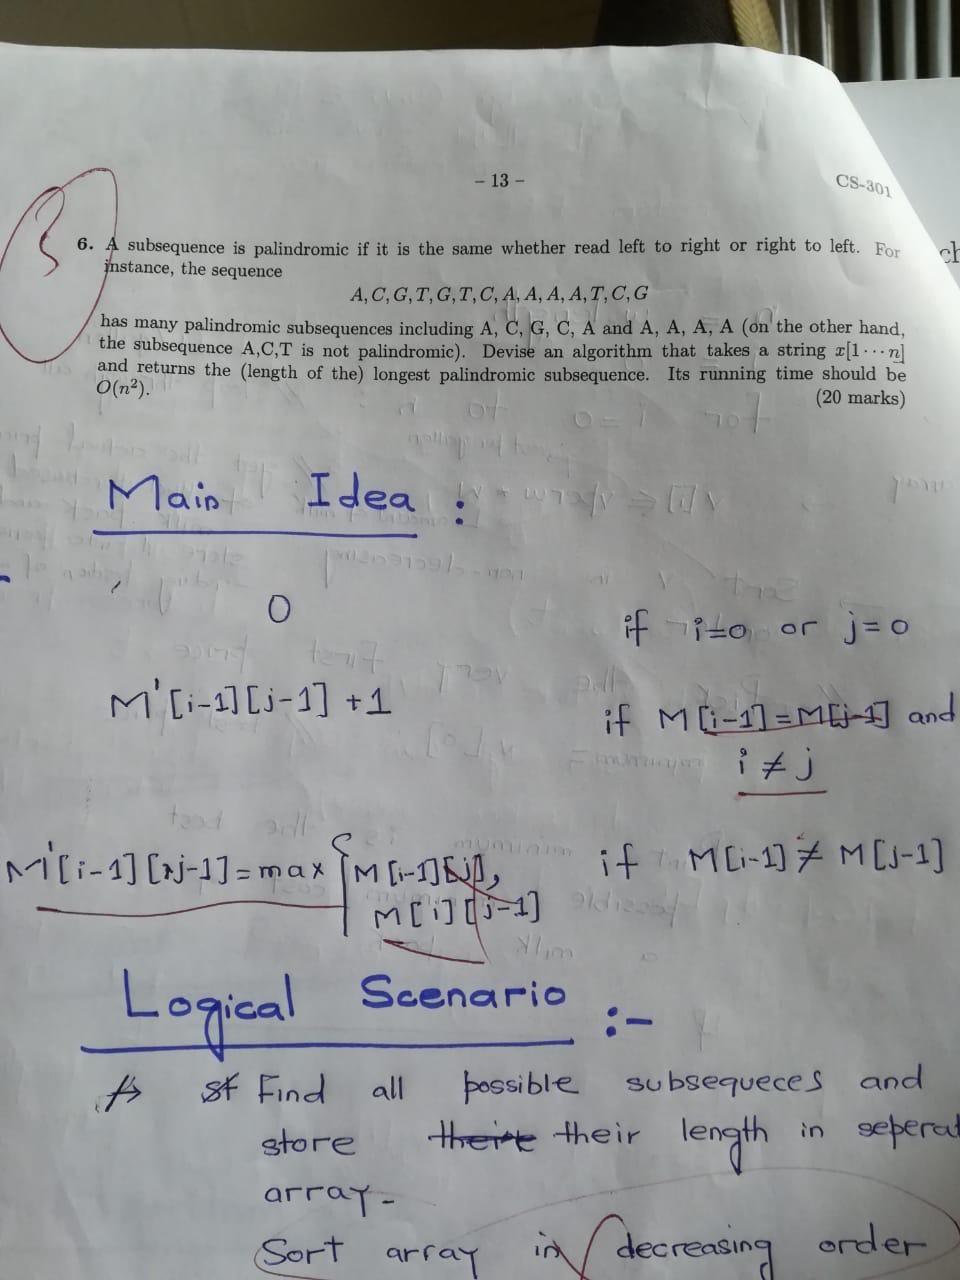 – 13 –
CS-301
3
6. A subsequence is palindromic if it is the same whether read left to right or right to left. For
instance, the sequence
A, C, G, T, G, T, C, A, A, A, A, T, C, G
has many palindromic subsequences including A, C, G, C, A and A, A, A, A (on the other hand,
the subsequence A,C,T is not palindromic). Devise an algorithm that takes a string x[1 · · · n]
and returns the (length of the) longest palindromic subsequence. Its running time should be
O(n²).
(20 marks)
Main Idea :
0 if i=0 or j=0
M'[i-1][j-1] +1 if M[i-1]=M[j-1] and
i ≠ j
M'[i-1][j-1]= max { M[i-1][j], if M[i-1] ≠ M[j-1]
M[i][j-1]
Logical Scenario :-
Find all possible subsequeces and
store their length in seperat
array-
Sort array in decreasing order